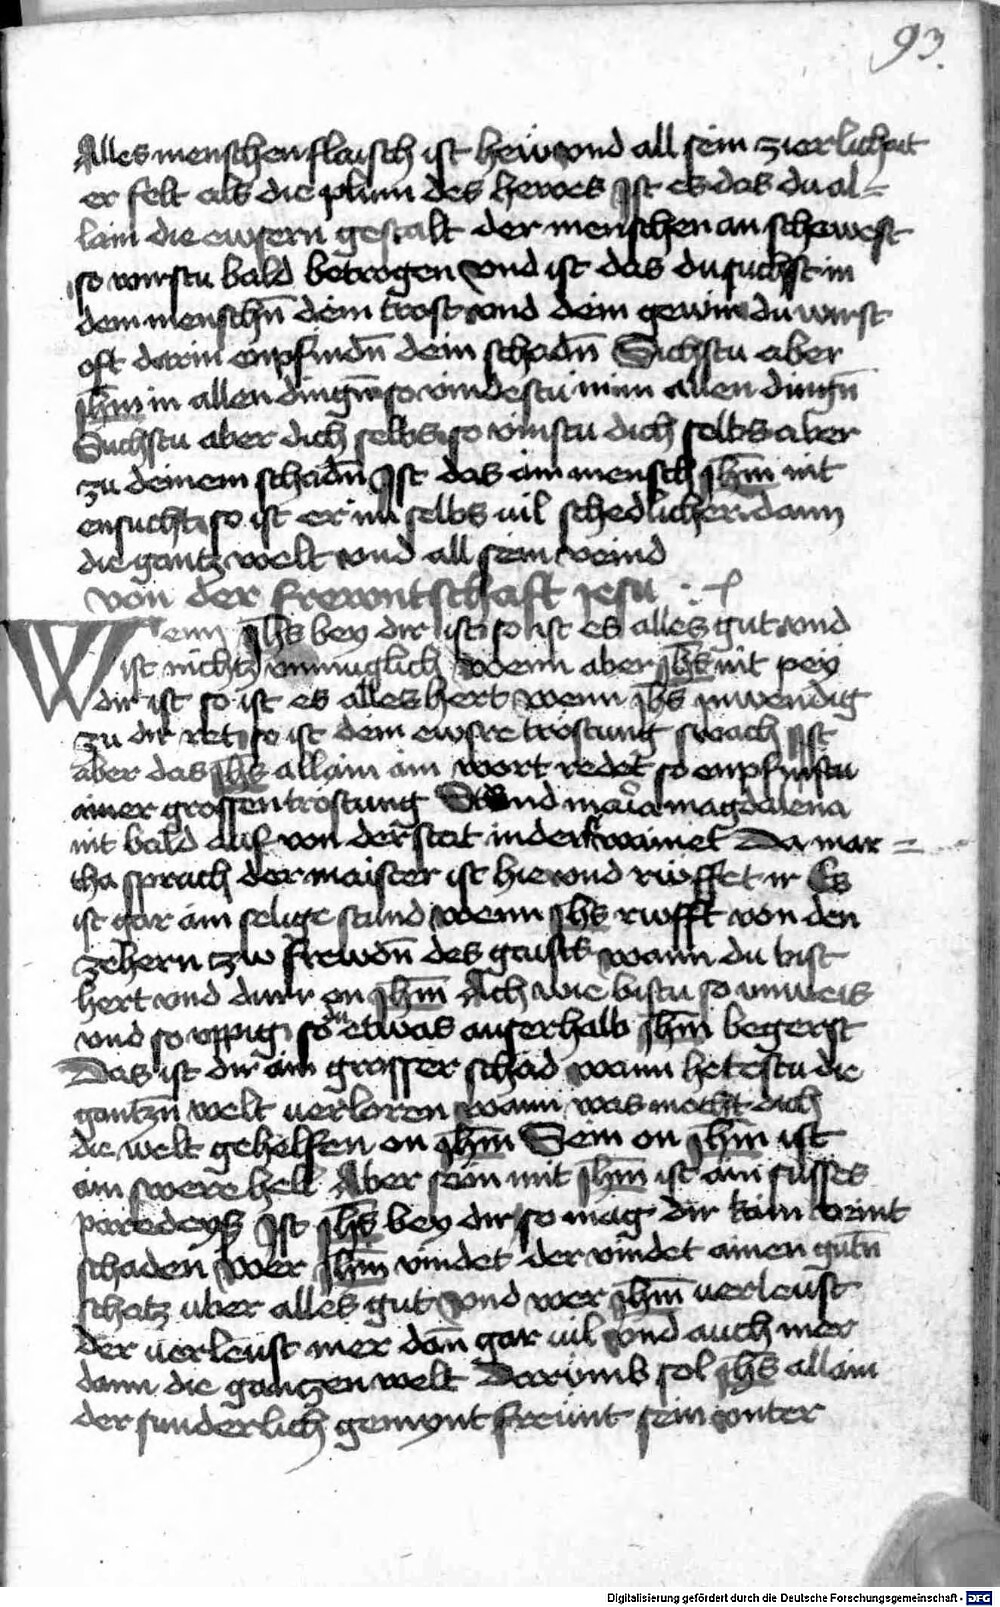 93.
Alles menschen flaisch ist hew vnd all sein zierlichait
er felt als die plum des hewes Ist es das du al=
lain die ewsern gestalt der menschen an schawest
so wirstu bald betrogen vnd ist das du suchst in
dem menschñ dein trost vnd dein gewin du wirst
oft darin enpfindñ dein schadñ Suchstu aber
jhm̄ in allen dingñ so vindestu in in allen dingñ
Suchstu aber dich selbs so vinstu dich selbs aber
zu deinem schadñ Ist das ain mensch jhm̄ nit
ensucht so ist er im selbs vil schedlicher dann
die gantz welt vnd all sein veind
von der frewntschaft jesu
Wenn jhs bey dir ist so ist es alles gut vnd
ist nichtz vnmuglich wenn aber jhs nit pey
dir ist so ist es alles hert wenn jhs inwendig
zu dir ret so ist dein ewsre trostung swach Ist
aber das jhs allain ain wort redet so enpfinstu
ainer grossen trostung Stund maria magdalena
nit bald auf von der stat in der sy wainet Da mar=
tha sprach der maister ist hie vnd rüffet ir Es
ist gar ain selige stund wenn jhs rufft von den
zehern tzw frewdñ des gaists wann du bist
hert vnd durr on jhm̄ Ach wie bistu so vnweis
vnd so vppig so du etwas auserhalb jhm̄ begerst
Das ist dir ain grosser schad wann hetestu die
gantzñ welt verloren wann was mocht dich
die welt gehelfen on jhm̄ Sein on jhm̄ ist
ain swere hell Aber sein mit jhm̄ ist ain susses
paredeyß Ist jhs bey dir so mag dir kain veint
schaden Wer jhm̄ vindet der vindet ainen gutñ
schatz vber alles gut vnd wer jhm̄ verleust
der verleust mer dan gar vil vnd auch mer
dann die gantzen welt Darumb sol jhs allain
der sunderlich gemynt freunt sein vnter
Digitalisierung gefördert durch die Deutsche Forschungsgemeinschaft - DFG